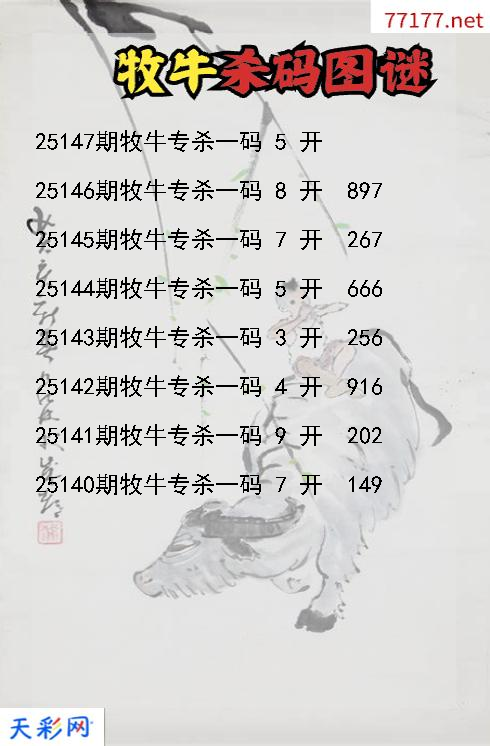 77177.net
牧牛杀码图谜
25147期牧牛专杀一码 5 开
25146期牧牛专杀一码 8 开 897
25145期牧牛专杀一码 7 开 267
25144期牧牛专杀一码 5 开 666
25143期牧牛专杀一码 3 开 256
25142期牧牛专杀一码 4 开 916
25141期牧牛专杀一码 9 开 202
25140期牧牛专杀一码 7 开 149
天彩网